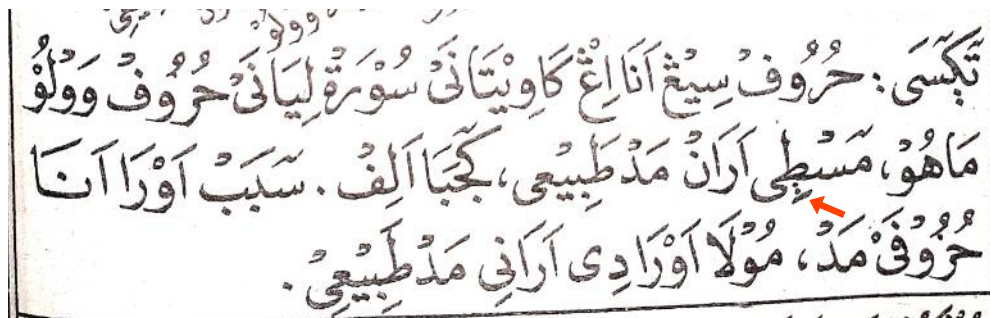 تٓࢴٓسَى : حُرُوفْ سِيْڠْ اَنَا اِڠْ كَاوِيْتَانَىْ سُوْرَةْ لِيَانَىْ حُرُوفْ وَوْلُوْ
مَاهُوْ، مٓسْࢋِى اَرَانْ مَدْ طَبِيْعِى، كٓجَبَا اَلِفْ. سَبَبْ اَوْرَا اَنَا
حُرُوْفَىْ مَدْ، مُوْلَا اَوْرَا دِى اَرَانِى مَدْ طَبِيْعِىْ.